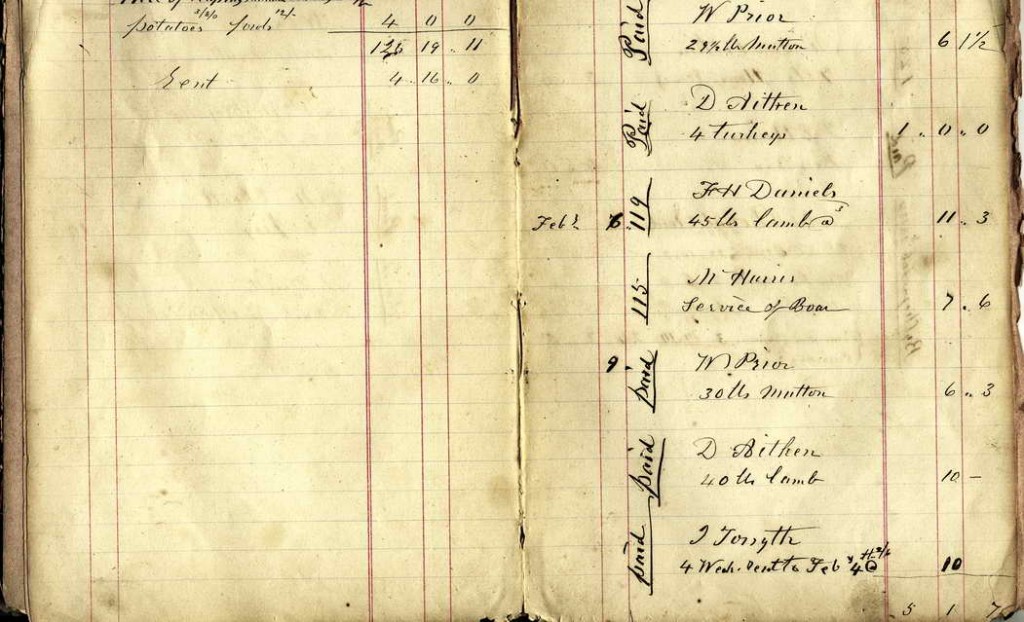 potatoes 2/2/0 fowls 12/- 4 0 0
126 19 .. 11
Rent 4 .. 16 .. 0
Paid W Prior
29½ lbs Mutton 6 1½
Paid D Aitken
4 turkeys 1 .. 0 .. 0
119 F H Daniels
Feby 6 45 lbs lamb @ 3 11 .. 3
115 Mr Harris
Service of Boar 7 .. 6
9 paid W Prior
30 lbs Mutton 6 .. 3
paid D Aitken
40 lbs lamb 10 -
paid J Forsyth
4 Week Rent to Feby 4 @ 2/6 10
5 1 7½